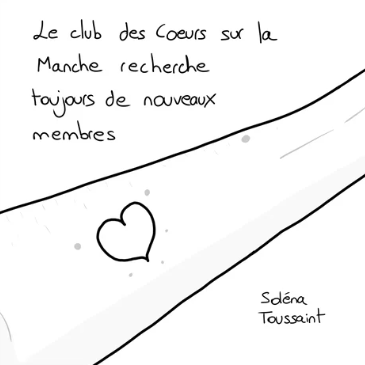 Le club des Coeurs sur la
Manche recherche
toujours de nouveaux
membres
Soléna
Toussaint